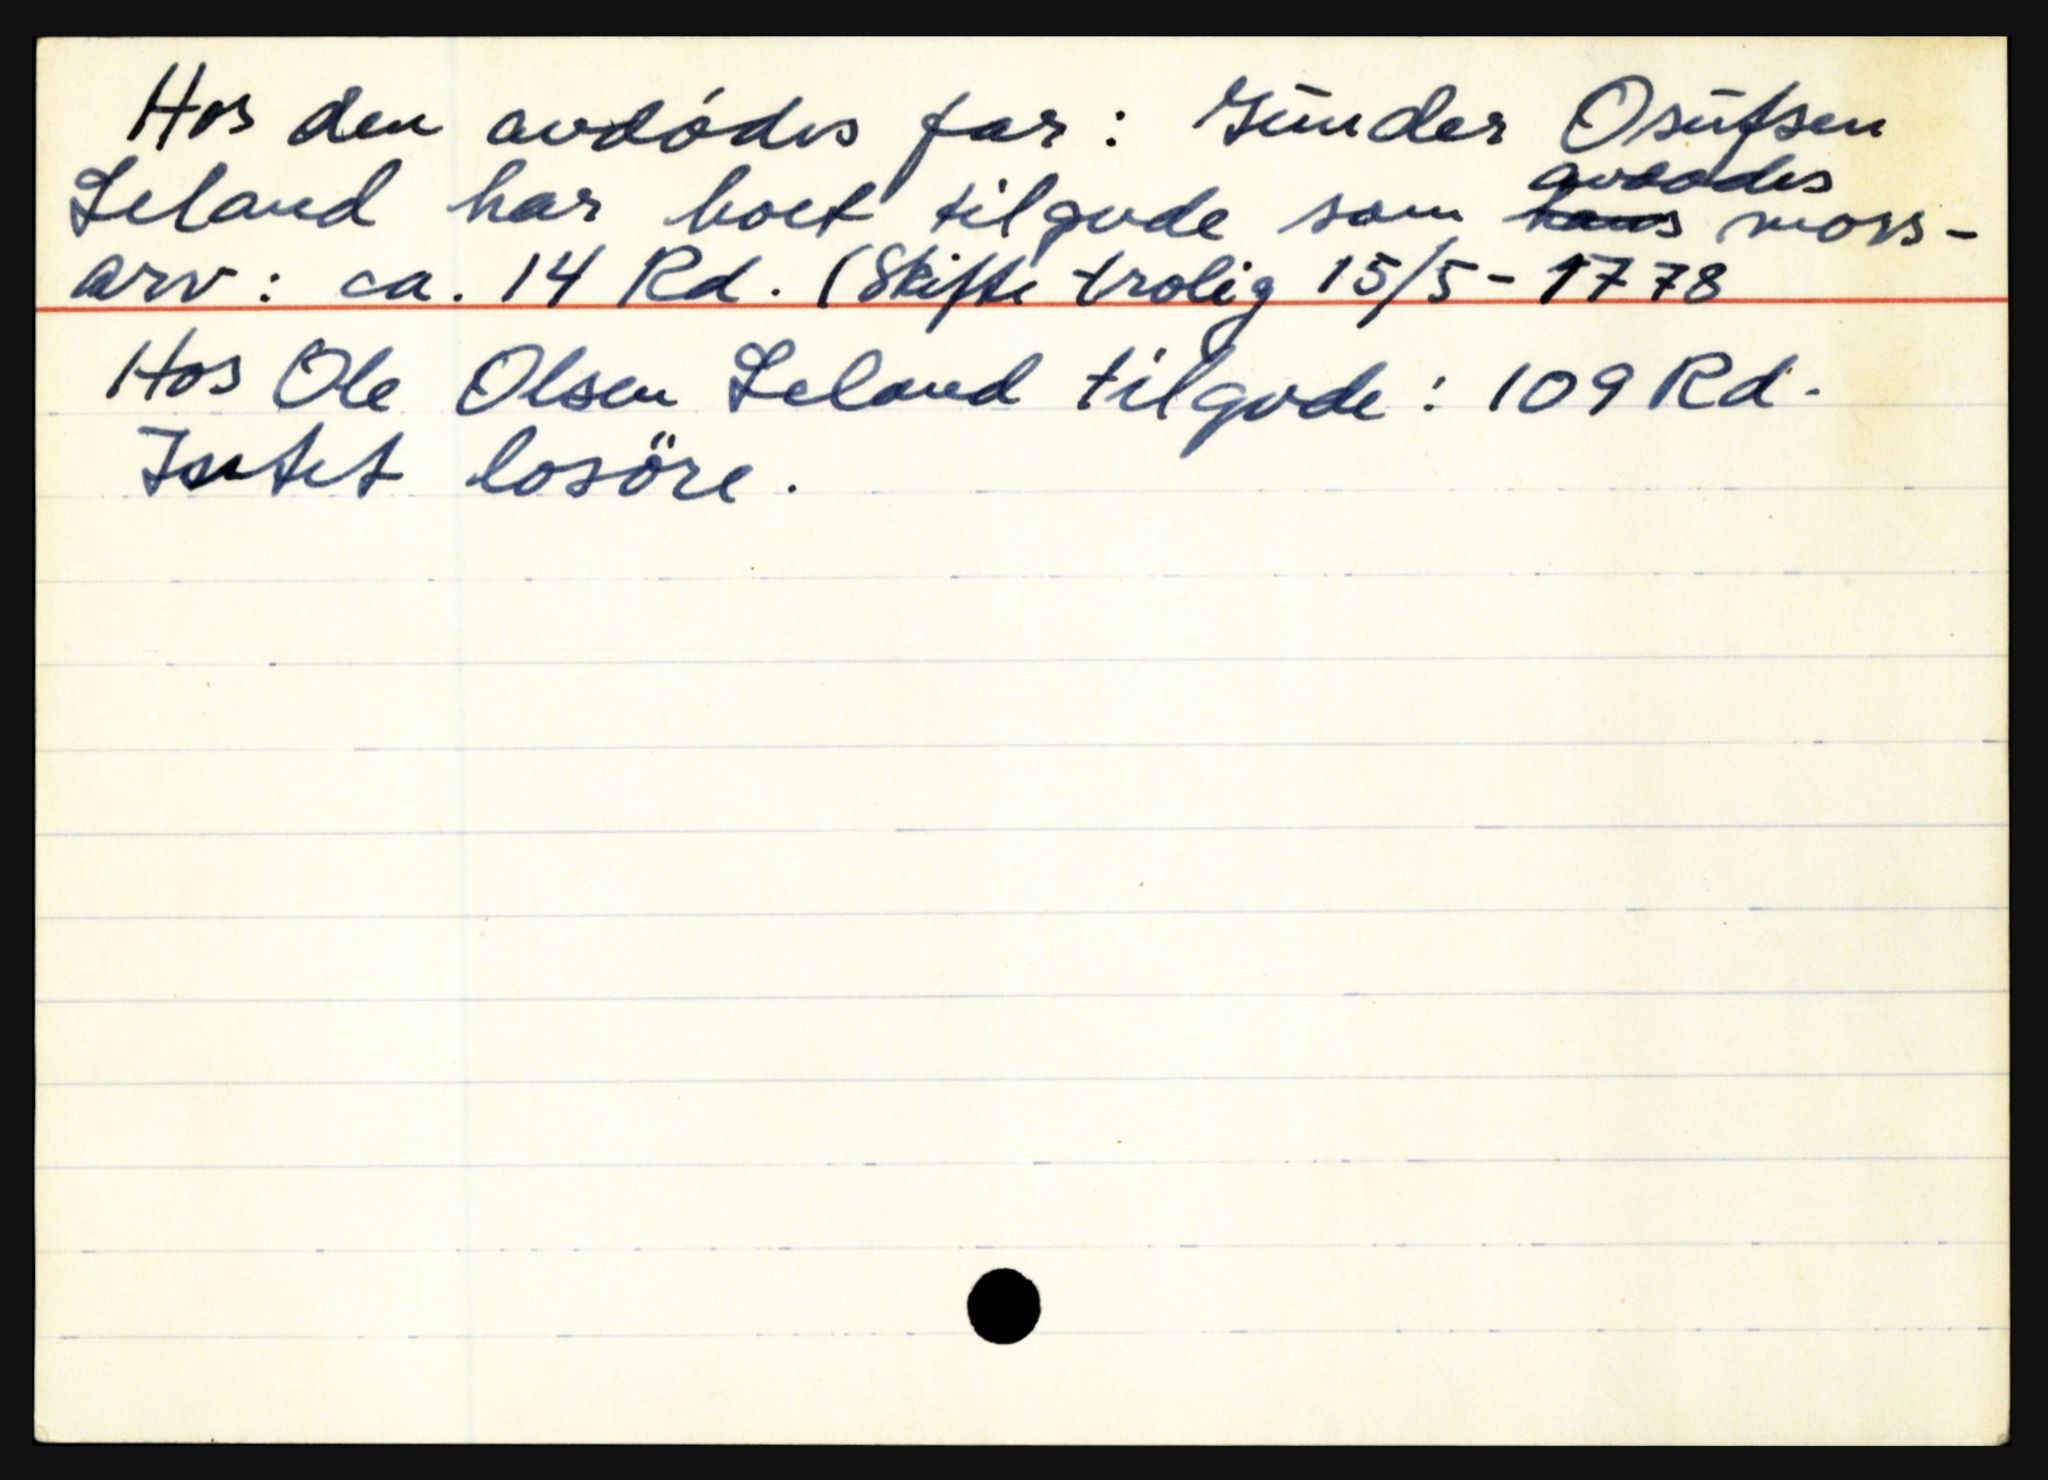 Hos den avdódes far: Gunder Osufsen
Leland har boet tilgode som avdødes mors-
arv: ca. 14 Rd. (Skifte trolig 15/5-1778
Hos Ole Olsen Leland tilgode: 109 Rd.
Intet losöre.